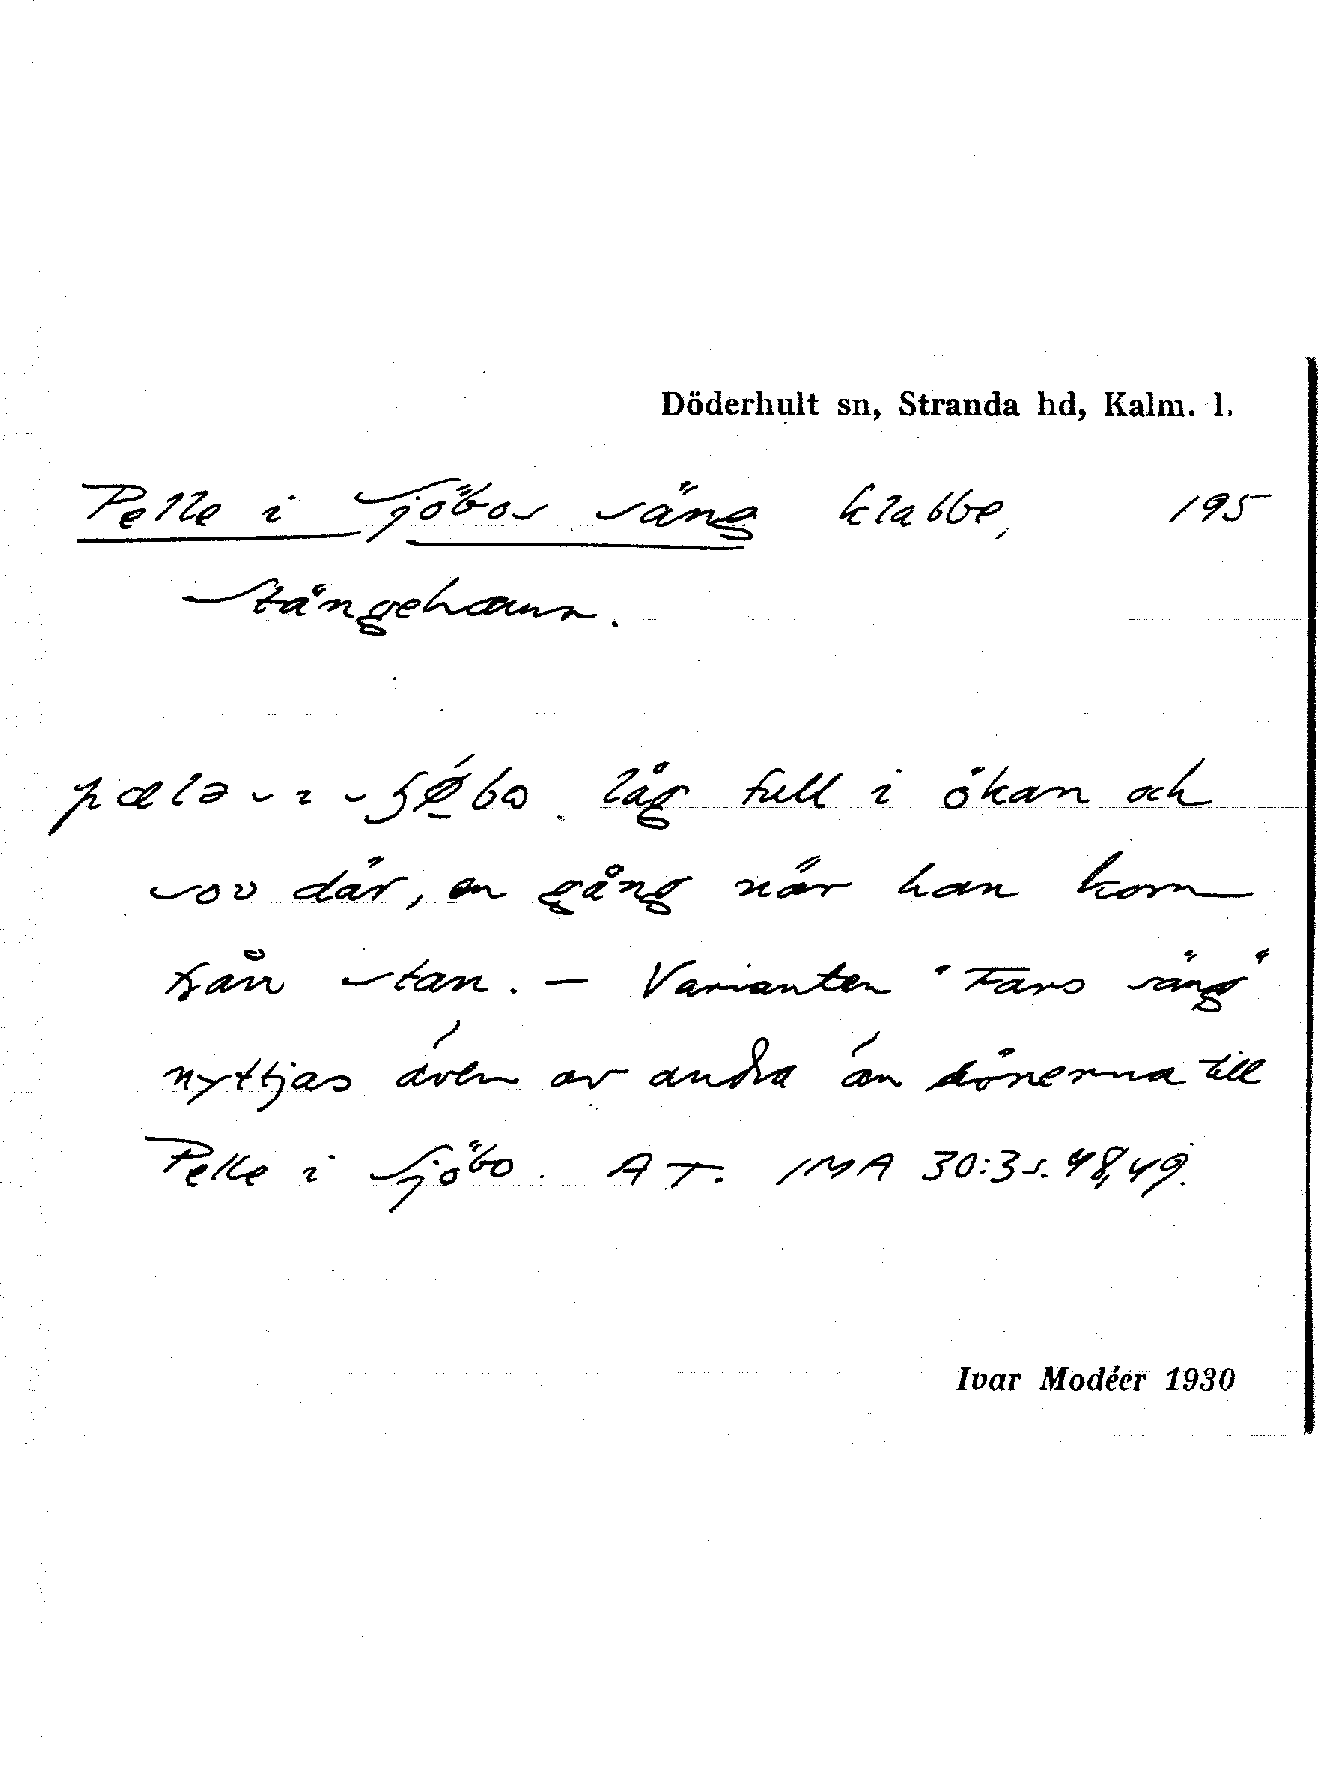 Döderhult sn, Stranda hd, Kalm. l.
Pelle i Sjöbos säng klabbe, 195
Stångehamn.
pælə ‿ ı ‿ ʂǿ̱bo låg full i ökan och
sov där, en gång när han kom
från stan. – Varianten "Fars säng"
nyttjas även av andra än sönerna till
Pelle i Sjöbo. AT. IMA 30:3 s. 48,49.
Ivar Modéer 1930